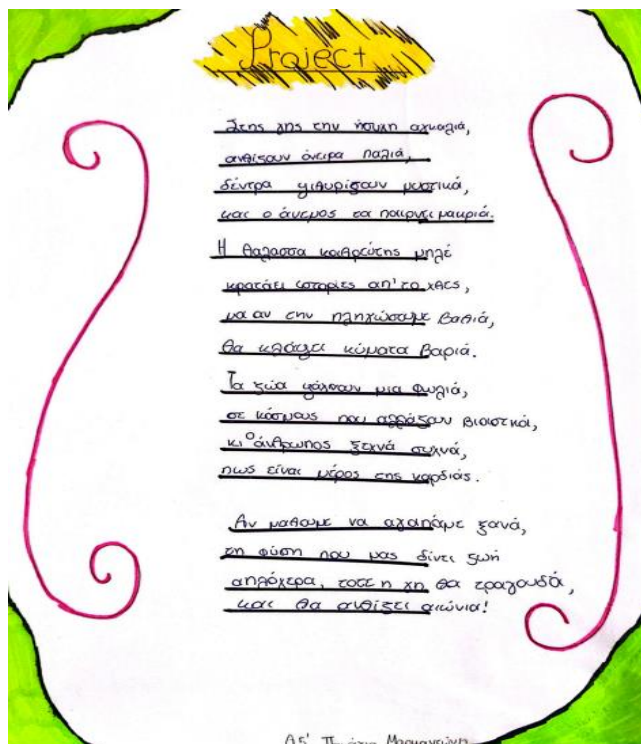 Project
Στης γης την ήσυχη αγκαλιά,
ανθίζουν όνειρα παλιά,
δέντρα ψιθυρίζουν μυστικά,
και ο άνεμος τα παίρνει μακριά.
Η θάλασσα καθρέυτης μπλέ
κρατάει ιστορίες απ' το χθες,
μα αν την πληγώσουμε βαθιά,
θα κλάψει κύματα βαριά.
Τα ζώα ψάχνουν μια φωλιά,
σε κόσμους που αλλάζουν βιαστικά,
κι ο άνθρωπος ξεχνά συχνά,
πως είναι μέρος της καρδιάς.
Αν μάθουμε να αγαπάμε ξανά,
τη φύση που μας δίνει ζωή
απλόχερα, τοτε η γη θα τραγουδά,
και θα ανθίζει αιώνια!